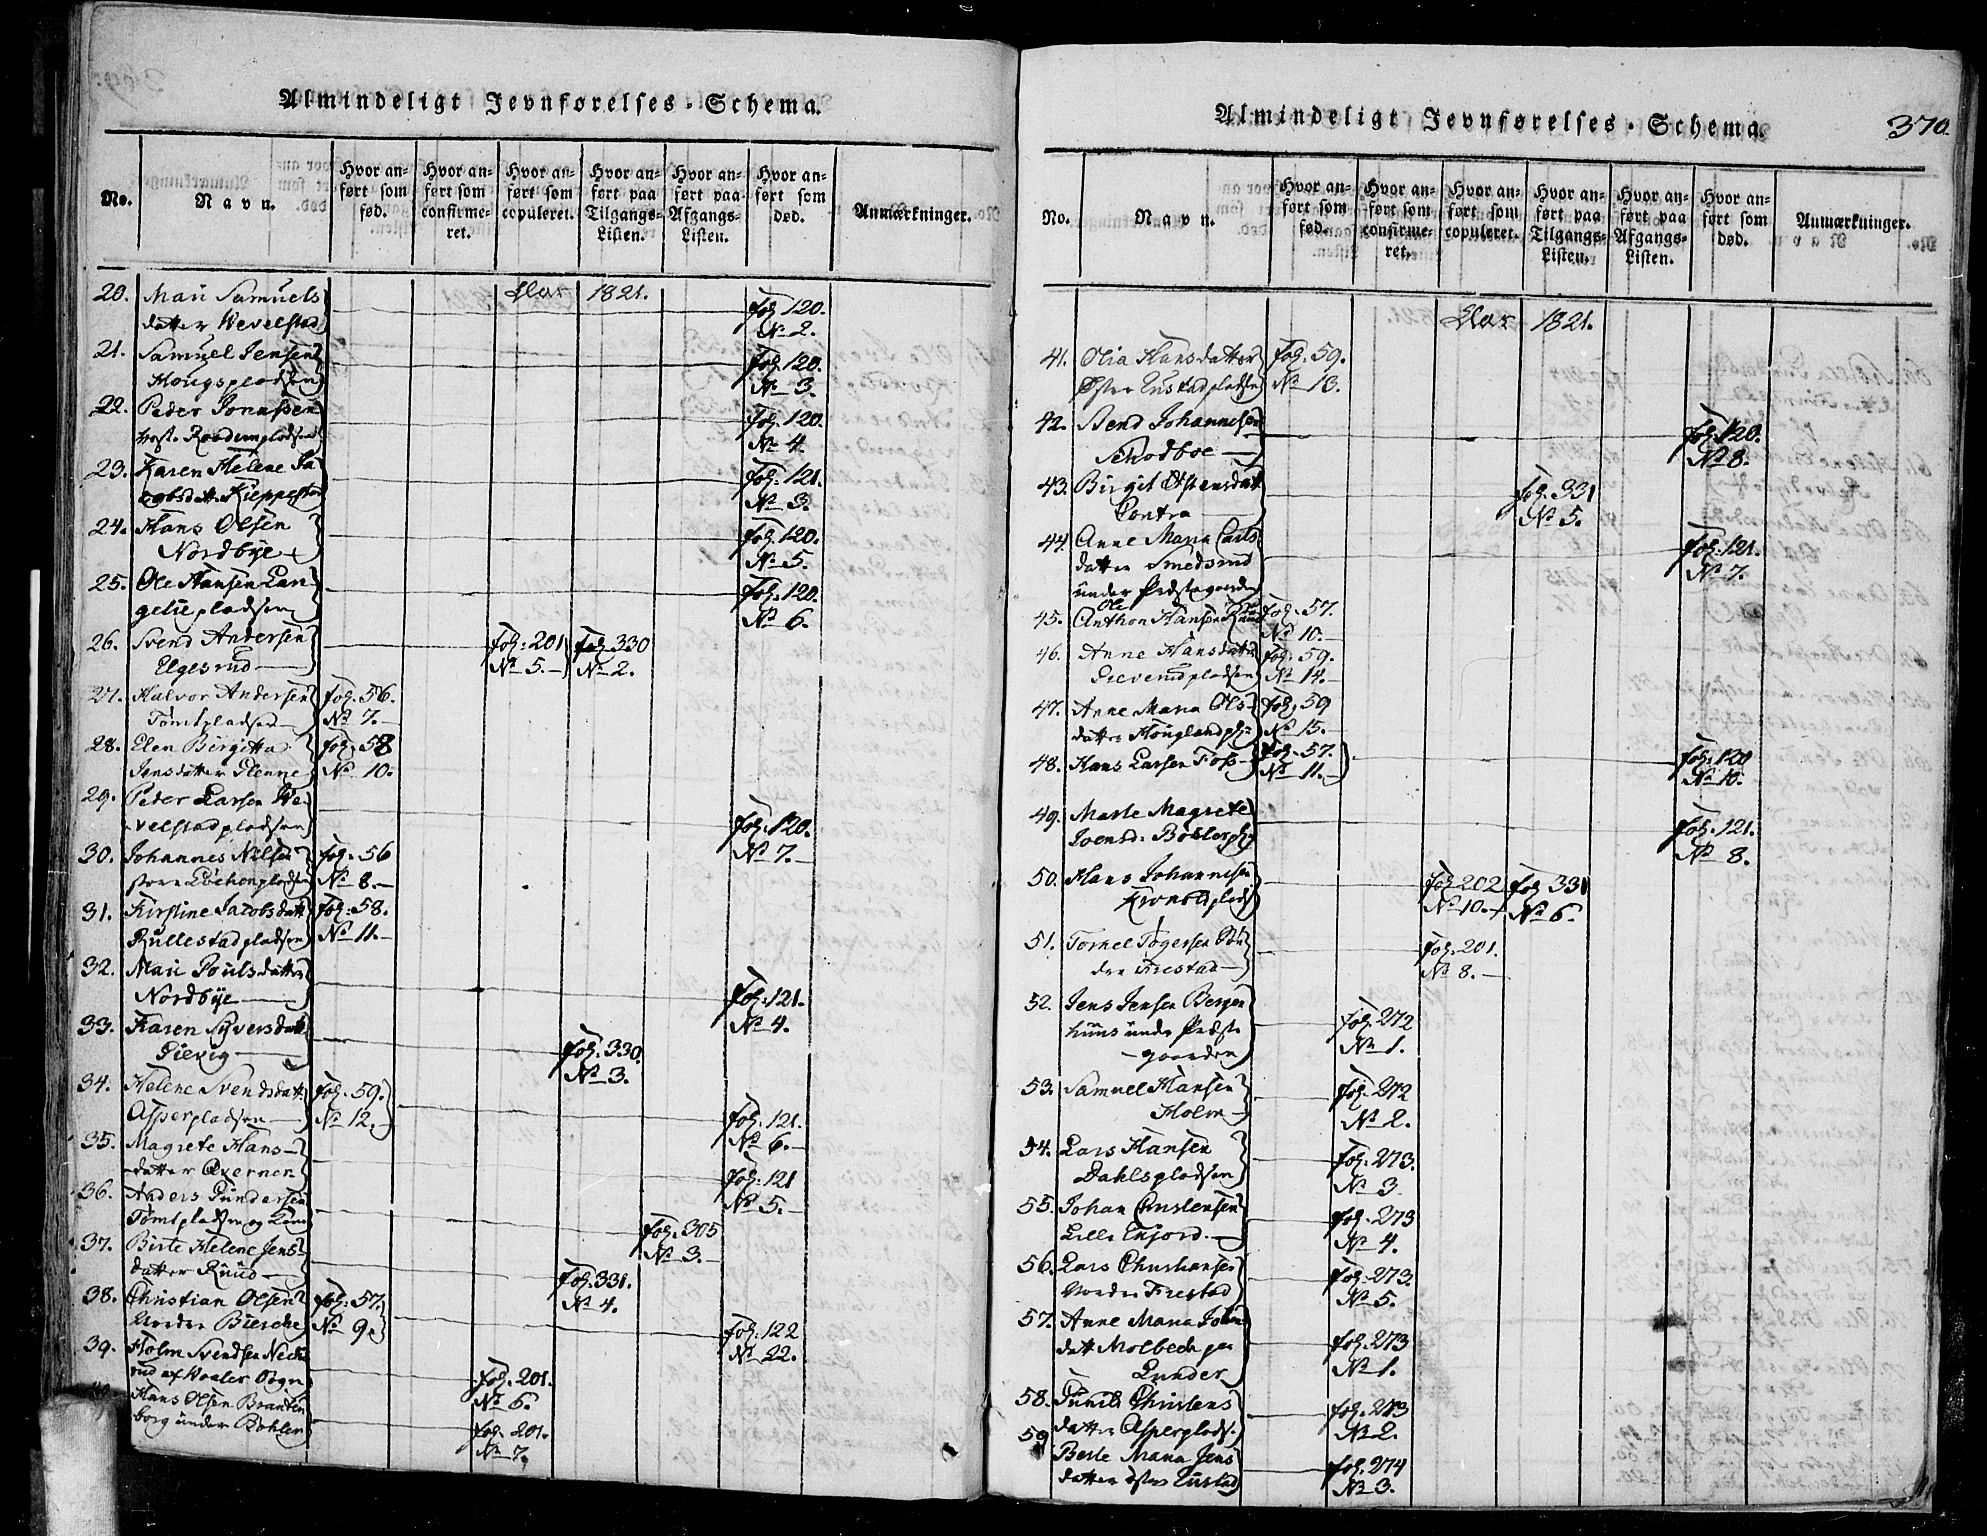 Almindeligt Jevnførelses-Schema.
No.
Navn.
Hvor an-
ført som
fød.
Hvor an-
ført som
confirme-
ret.
Hvor an-
ført som
copuleret.
Hvor an-
ført paa
Tilgangs-
Listen.
Hvor an-
ført paa
Afgangs-
Listen.
Hvor an-
ført som
død.
Anmærkninger.
Aar 1821.
20. Mari Samuels fol. 120.
datter Wevelstad No 2.
21. Samuel Jensen fol. 120.
Hougspladsen No 3.
22. Peder Jonassen fol. 120.
No 4.
23. Karen Helene Ja fol. 121.
cobsdatt. Kieppestad No 3.
24. Hans Olsen fol. 120.
Nordbye No 5.
25. Ole Hansen Lan fol. 120.
geliepladsen No 6.
26. Svend Andersen fol. 201 fol. 330
Elgesrud No 5. No 2.
27. Halvor Andersen fol. 56.
Tomtpladsen No 7.
28. Elen Birgitta fol. 58
Jensdatter Glenne No 10.
29. Peder Larsen We
velstadpladsen fol. 120.
No 7.
30. Johannes Nilsen fol. 56
No 8.
31. Kirstine Jacobsdatt fol. 58.
Rullestadpladsen No 11.
32. Mari Poulsdatter fol. 121.
Nordbye No 4.
33. Karen Syversdatt fol. 330.
No 3.
34. Helene Svendsdatt fol. 59. fol. 121.
Asperpladsen No 12. No 6.
35. Magrete Hans- fol. 121
datter Qverner No 5.
36. Anders Gundersen fol. 305
Tomtpladsen og No 3.
37. Birte Helene Jens- fol. 331.
datter Ruud No 4.
38. Christian Olsen fol. 57. fol. 122
Nordre Bierche No 9. No 22.
39. Holm Svendsen fol. 201.
af Waaler Sogn No 6.
40. Hans Olsen Branten fol. 201.
borg under Bøhler No 7.
Almindeligt Jevnførelses-Schema.
370.
No.
Navn.
Hvor an-
ført som
fød.
Hvor an-
ført som
confirme-
ret.
Hvor an-
ført som
copuleret.
Hvor an-
ført paa
Tilgangs-
Listen.
Hvor an-
ført paa
Afgangs-
Listen.
Hvor an-
ført som
død.
Anmærkninger.
Aar 1821.
41. Olia Hansdatter fol. 59.
No 13.
42. Svend Johannesen fol. 120.
Skodboe No 8.
43. Birgit Østensdatt fol. 331
No 5.
44. Anne Maria Carls fol. 121.
datter Smedsrud No 7.
under Præstegaarden
Ole
45. Anthon Hansen Ruud fol. 57.
No 10.
46. Anne Hansdatter fol. 59.
No 14.
47. Anne Maria Ols- fol. 59
datter No 15.
48. Hans Larsen Foss fol. 57. fol. 120
No 11. No 10.
49. Marte Magrete fol. 121.
No 8.
50. Hans Johannesen fol. 202 fol. 331
No 10. No 6.
51. Torkel Togersen Søn fol. 201.
dre Frestad No 8.
52. Jens Jensen Bergen fol. 272
huus under Præste No 1.
gaarden
53. Samuel Hansen fol. 272
Holm No 2.
54. Lars Hansen fol. 273.
Dahlspladsen No 3
55. Johan Christensen fol. 273
Lille Enfjord No 4.
56. Lars Christiansen fol. 273.
Nordre Frestad No 5.
57. Anne Maria Johns
datt Molbech paa fol. 273
Lunder No 1.
58. Gunild Christens fol. 273
datter Asperplads. No 2.
59. Berte Maria Jens fol. 274
datter No 3.